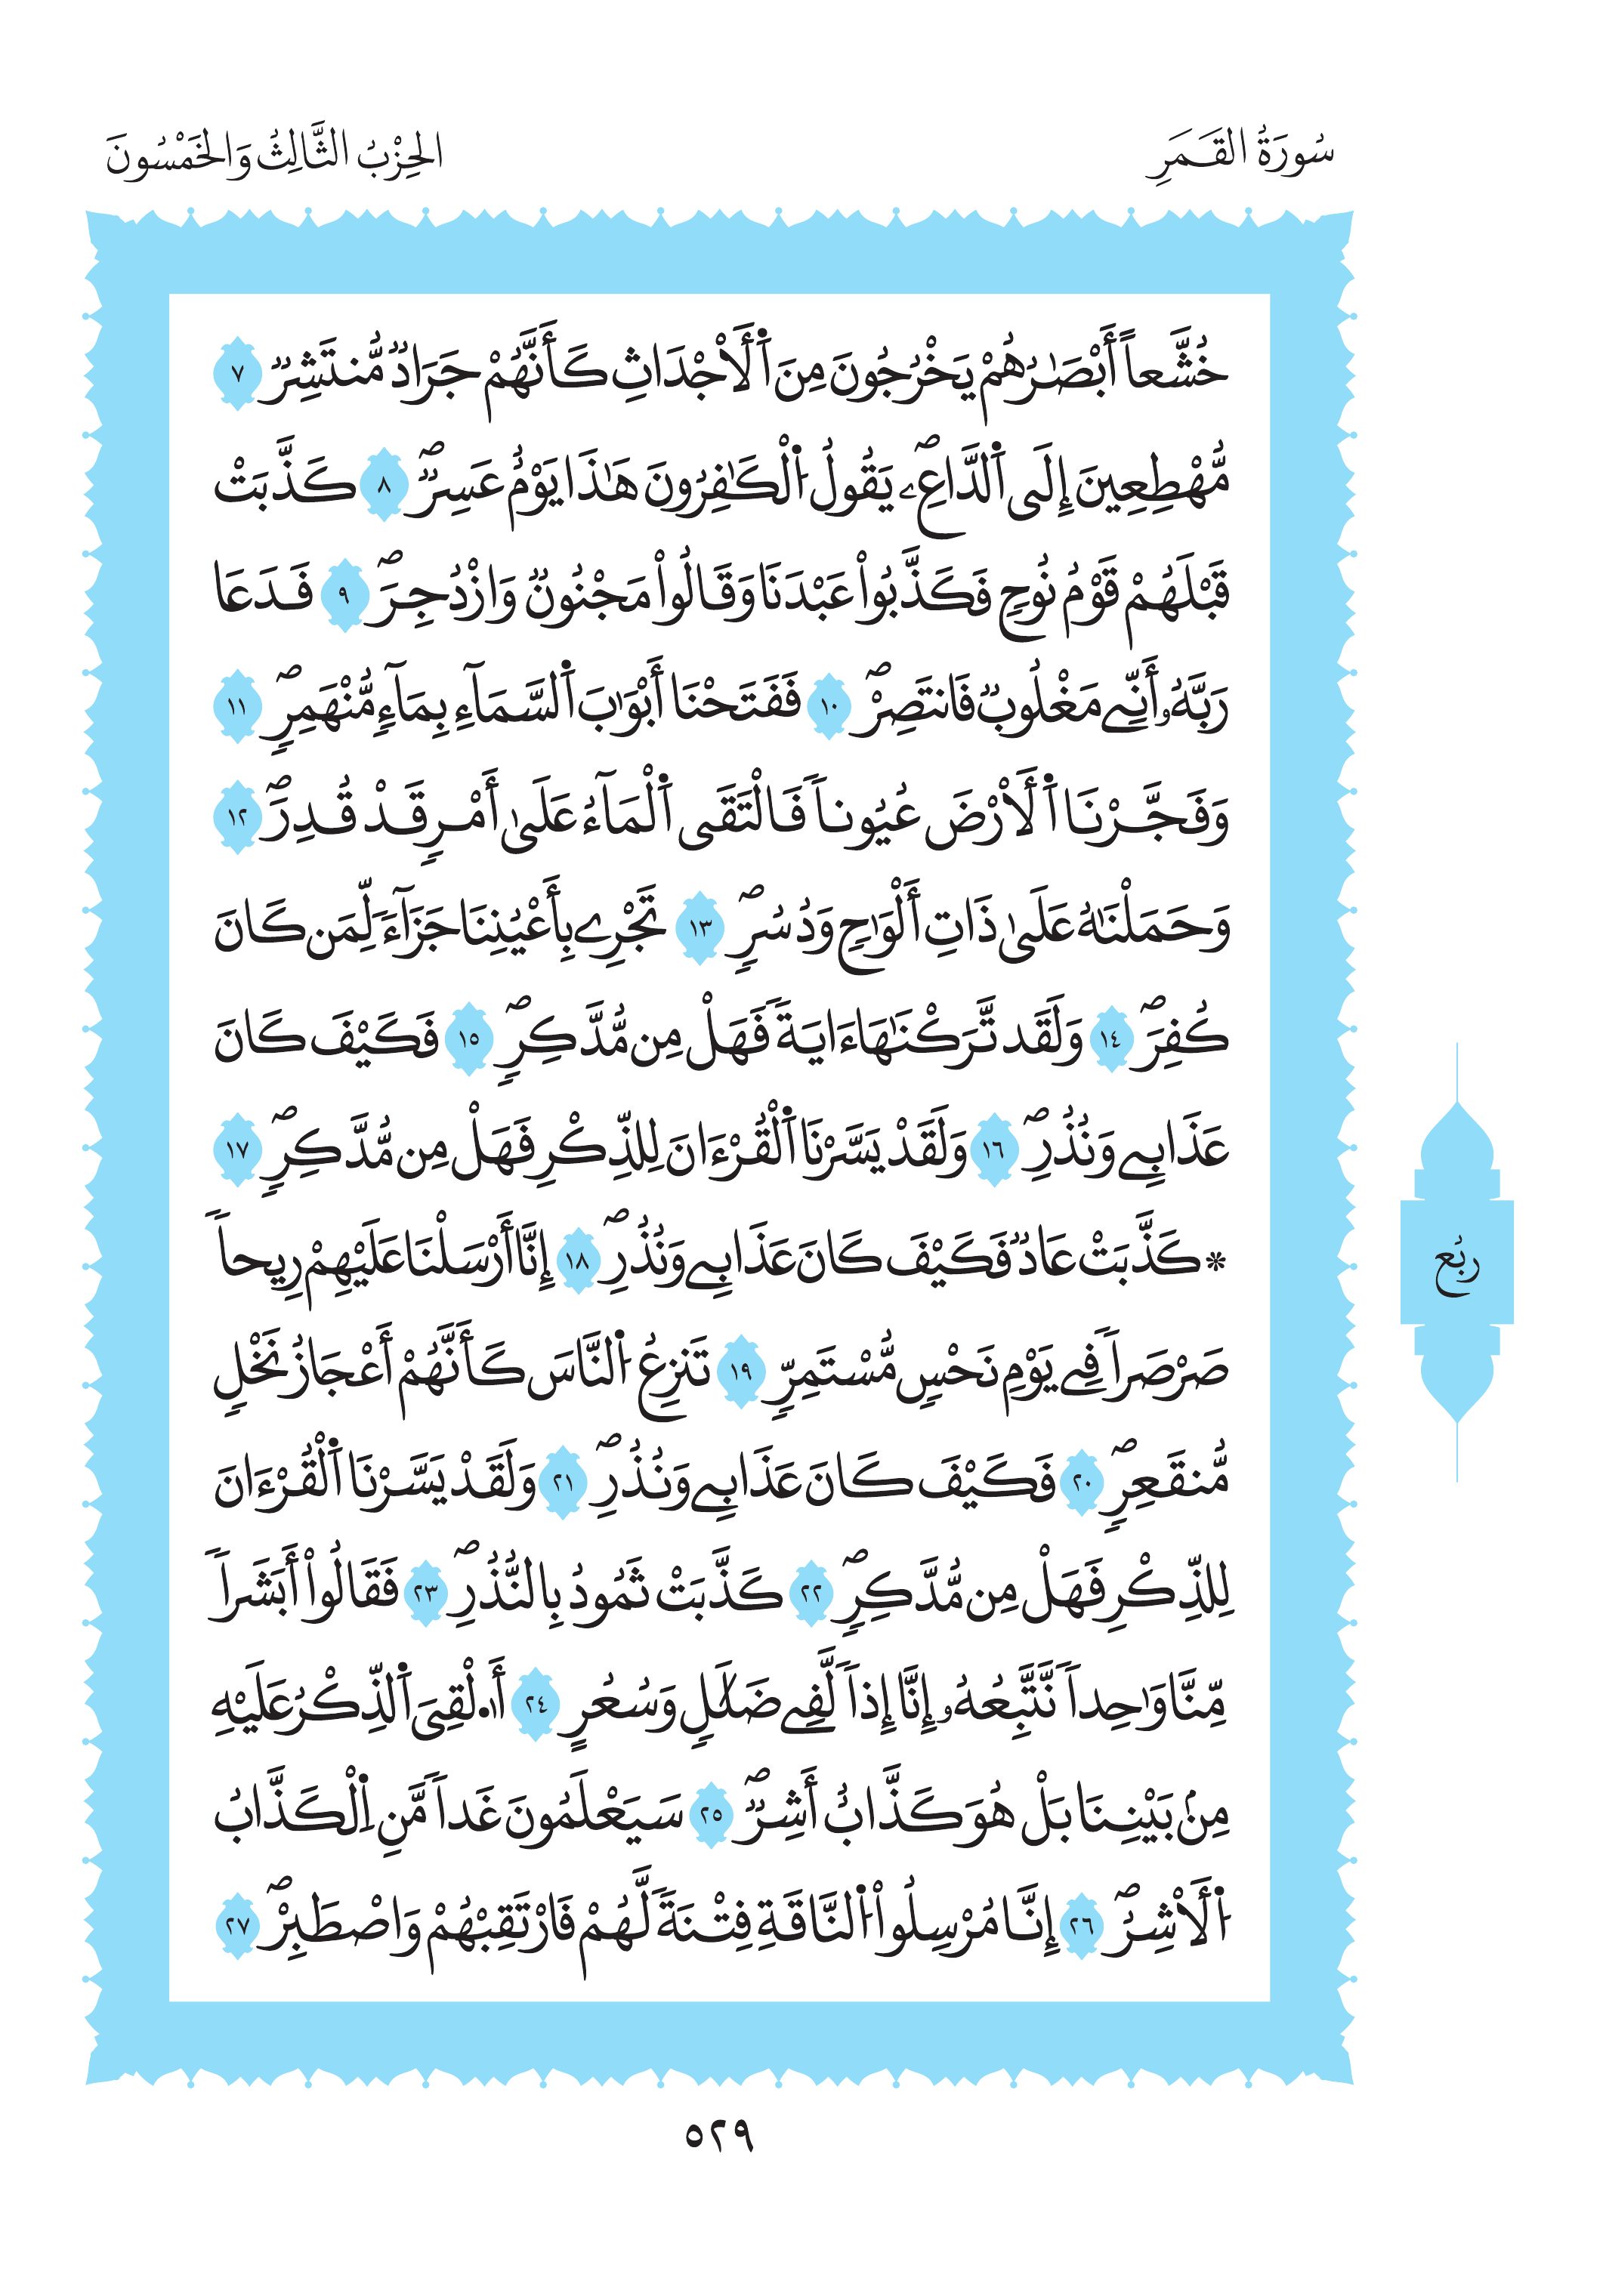 سُورَةُ القَمَرِ
الحِزْبُ الثَّالِثُ وَالخَمْسُونَ
خُشَّعاً أَبْصَٰرُهُمْ يَخْرُجُونَ مِنَ اَ۬لْأَجْدَاثِ كَأَنَّهُمْ جَرَادٞ مُّنتَشِرٞ ٧
مُّهْطِعِينَ إِلَى اَ۬لدَّاعِۦۖ يَقُولُ اُ۬لْكَٰفِرُونَ هَٰذَا يَوْمٌ عَسِرٞۖ ٨ كَذَّبَتْ
قَبْلَهُمْ قَوْمُ نُوحٖ فَكَذَّبُواْ عَبْدَنَا وَقَالُواْ مَجْنُونٞ وَازْدُجِرَۖ ٩ فَدَعَا
رَبَّهُۥ أَنِّے مَغْلُوبٞ فَانتَصِرْۖ ١٠ فَفَتَحْنَا أَبْوَٰبَ اَ۬لسَّمَآءِ بِمَآءٖ مُّنْهَمِرٖۖ ١١
وَفَجَّرْنَا اَ۬لْأَرْضَ عُيُوناٗ فَالْتَقَى اَ۬لْمَآءُ عَلَىٰ أَمْرٖ قَدْ قُدِرَۖ ١٢
وَحَمَلْنَٰهُ عَلَىٰ ذَاتِ أَلْوَٰحٖ وَدُسُرٖۖ ١٣ تَجْرِے بِأَعْيُنِنَا جَزَآءٗ لِّمَن كَانَ
كُفِرَۖ ١٤ وَلَقَد تَّرَكْنَٰهَا ءَايَةٗ فَهَلْ مِن مُّدَّكِرٖۖ ١٥ فَكَيْفَ كَانَ
عَذَابِے وَنُذُرِۖ ١٦ وَلَقَدْ يَسَّرْنَا اَ۬لْقُرْءَانَ لِلذِّكْرِ فَهَلْ مِن مُّدَّكِرٖۖ ١٧
* كَذَّبَتْ عَادٞ فَكَيْفَ كَانَ عَذَابِے وَنُذُرِۖ ١٨ إِنَّا أَرْسَلْنَا عَلَيْهِمْ رِيحاٗ
صَرْصَراٗ فِے يَوْمِ نَحْسٖ مُّسْتَمِرّٖ ١٩ تَنزِعُ اُ۬لنَّاسَ كَأَنَّهُمْ أَعْجَازُ نَخْلٖ
مُّنقَعِرٖۖ ٢٠ فَكَيْفَ كَانَ عَذَابِے وَنُذُرِۖ ٢١ وَلَقَدْ يَسَّرْنَا اَ۬لْقُرْءَانَ
لِلذِّكْرِ فَهَلْ مِن مُّدَّكِرٖۖ ٢٢ كَذَّبَتْ ثَمُودُ بِالنُّذُرِۖ ٢٣ فَقَالُواْ أَبَشَراٗ
مِّنَّا وَٰحِداٗ نَّتَّبِعُهُۥ إِنَّا إِذاٗ لَّفِے ضَلَٰلٖ وَسُعُرٍ ٢٤ أَ۟لْقِيَ اَ۬لذِّكْرُ عَلَيْهِ
مِنۢ بَيْنِنَا بَلْ هُوَ كَذَّابٌ أَشِرٞۖ ٢٥ سَيَعْلَمُونَ غَداٗ مَّنِ اِ۬لْكَذَّابُ
اُ۬لْأَشِرُۖ ٢٦ إِنَّا مُرْسِلُواْ اُ۬لنَّاقَةِ فِتْنَةٗ لَّهُمْ فَارْتَقِبْهُمْ وَاصْطَبِرْۖ ٢٧
ربُع
٥٢٩